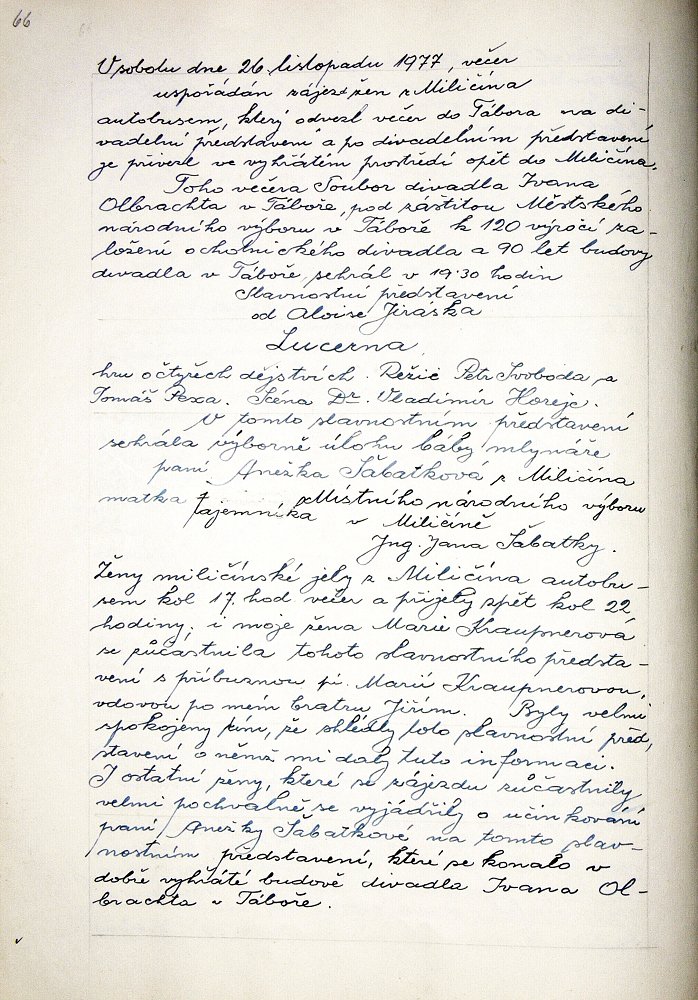 66
V sobotu dne 26. listopadu 1977, večer
uspořádán zájezd žen z Miličína
autobusem, který odvezl večer do Tábora na di-
vadelní představení a po divadelním představení
je přivezl ve vyhřátém prostředí opět do Miličína.
Toho večera Soubor divadla Ivana
Olbrachta v Táboře, pod záštitou Městského
národního výboru v Táboře k 120 výročí za-
ložení ochotnického divadla a 90 let budovy
divadla v Táboře, sehrál v 19.30 hodin
Slavnostní představení
od Aloise Jiráska
Lucerna
hru o čtyřech dějstvích. Režie Petr Svoboda a
Tomáš Pexa. Scéna Dr. Vladimír Horejc.
V tomto slavnostním představení
sehrála výborně úlohu báby mlynáře
paní Anežka Šabatková z Miličína
matka tajemníka Místního národního výboru
v Miličíně
Ing. Jana Šabatky.
Ženy miličínské jely z Miličína autobu-
sem kol 17. hod večer a přijely zpět kol 22
hodiny; i moje žena Marie Kraupnerová
se zúčastnila tohoto slavnostního předsta-
vení s příbuznou pí. Marií Kraupnerovou,
vdovou po mém bratru Jiřím. Byly velmi
spokojeny tím, že shlédly toto slavnostní před,
stavení o němž mi daly tuto informaci.
I ostatní ženy, které se zájezdu zúčastnily
velmi pochvalně se vyjádřily o účinkování
paní Anežky Šabatkové na tomto slav-
nostním představení, které se konalo v
dobře vyhřáté budově divadla Ivana Ol-
brachta v Táboře.